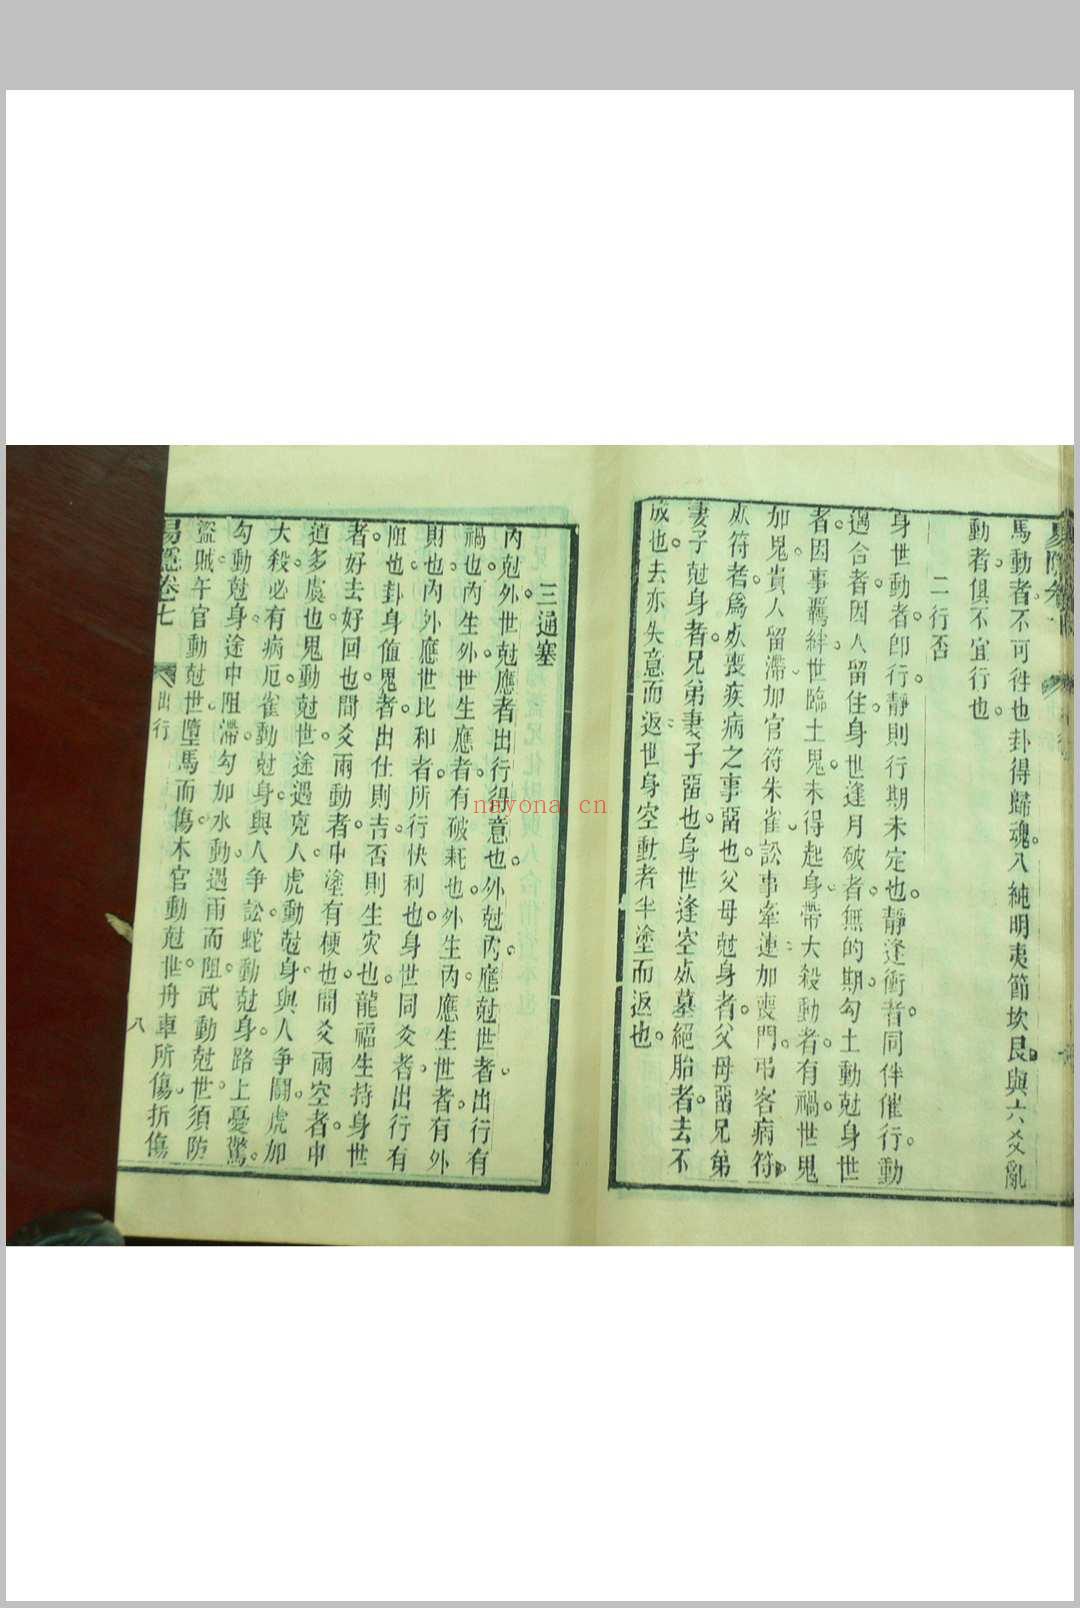 馬動者。不可往也。卦得歸魂。八純明夷節坎艮。與六爻亂
動者。俱不宜行也。
二行否
身世動者。即行。靜則行期未定也。靜逢衝者。同伴催行。動
遇合者。因人留住。身世逢月破者。無的期。勾土動尅身世
者。因事羈絆。世臨土鬼。未得起身。帶大殺動者。有禍。世鬼
加鬼。貴人留滯。加官符朱雀。訟事牽連。加喪門。弔客病符
者。爲喪疾病之事畱也。父母尅身者。父母畱。兄弟
妻子尅身者。兄弟妻子畱也。身世逢空墓絕胎者。去不
成也。去亦失意而返。世身空動者。半塗而返也。
三通塞
內尅外。世尅應者。出行得意也。外尅內。應尅世者。出行有
禍也。內生外。世生應者。有破耗也。外生內。應生世者。有外
財也。內外應世比和者。所行快利也。身世同爻者。出行有
阻也。卦身値鬼者。出仕則吉。否則生灾也。龍福生持身世
者。好去好回也。間爻兩動者。中塗有梗也。間爻兩空者。中
道多虞也。鬼動尅世。途遇克人。虎動尅身。與人争鬭。虎加
大殺。必有病厄。雀動尅身。與人争訟。蛇動尅身。路上憂驚。
勾動尅身。途中阻滯。勾加水動。遇雨而阻。武動尅世。須防
盜賊。午官動尅世。墮馬而傷。木官動尅世。舟車所傷。折傷
易隱卷七
出行
八
nayona.cn